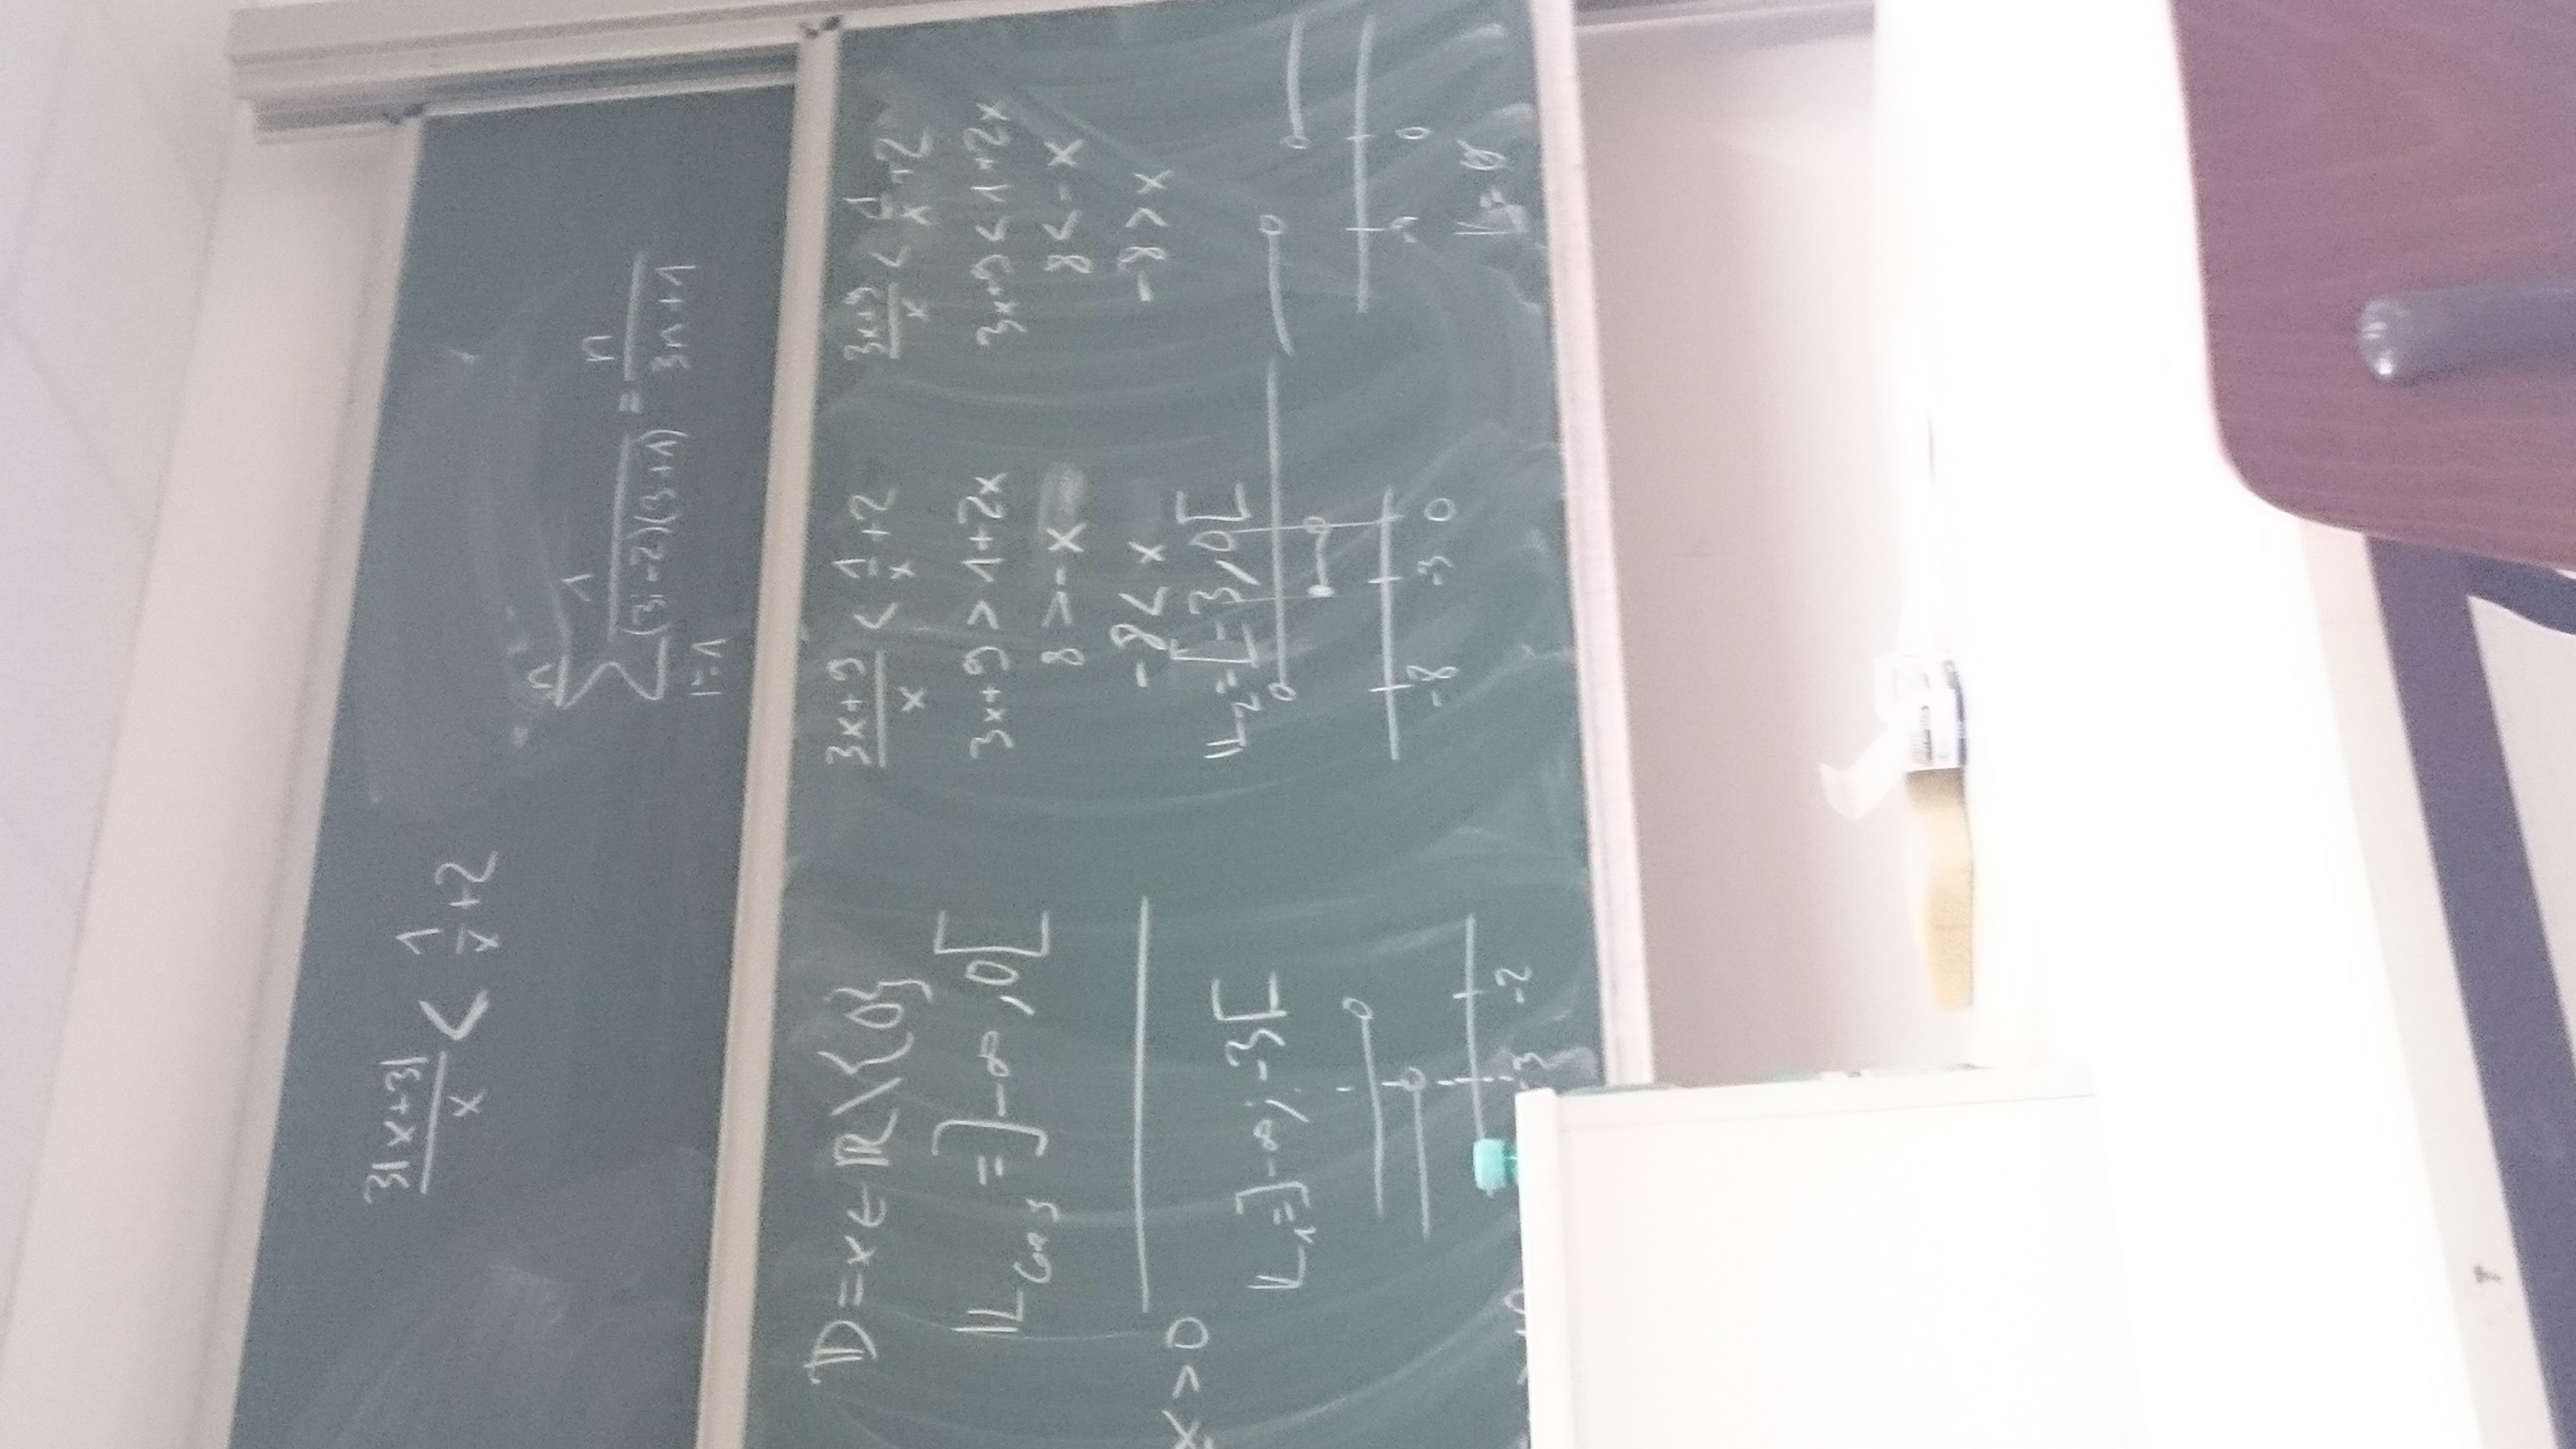 3|x+3|/x < 1/x +2
n
∑ 1/(3i-2)(3+1) = n/3n+1
i=1
D = x ∈ ℝ\{0}
𝕃Ges = ]-∞,0[
x>0
𝕃1=]-∞;-3[
-3 -2
3x+9/x < 1/x +2
3x+9 > 1+2x
8 > -x
-8 < x
𝕃2=[-3,0[
-8 -3 0
3x+9/x < 1/x +2
3x+9 < 1+2x
8 < -x
-8 > x
0
𝕃= ∅